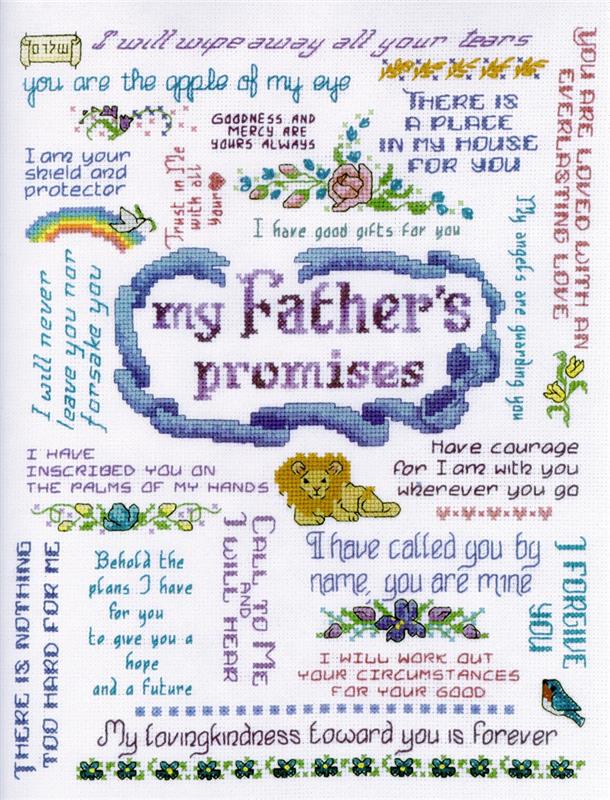 שלום
I will wipe away all your tears
you are the apple of my eye
GOODNESS AND
MERCY ARE
YOURS ALWAYS
THERE IS
A PLACE
IN MY HOUSE
FOR YOU
YOU ARE LOVED WITH AN
EVERLASTING LOVE
I am your
shield and
protector
Trust in Me
with all
your
I have good gifts for you
My angels are guarding you
I will never
leave you nor
forsake you
my Father's
promises
I HAVE
INSCRIBED YOU ON
THE PALMS OF MY HANDS
Have courage
for I am with you
wherever you go
THERE IS NOTHING
TOO HARD FOR ME
Behold the
plans I have
for you
to give you a
hope
and a future
CALL TO ME
AND
I WILL HEAR
I have called you by
name, you are mine
I FORGIVE
YOU
I WILL WORK OUT
YOUR CIRCUMSTANCES
FOR YOUR GOOD
My lovingkindness toward you is forever